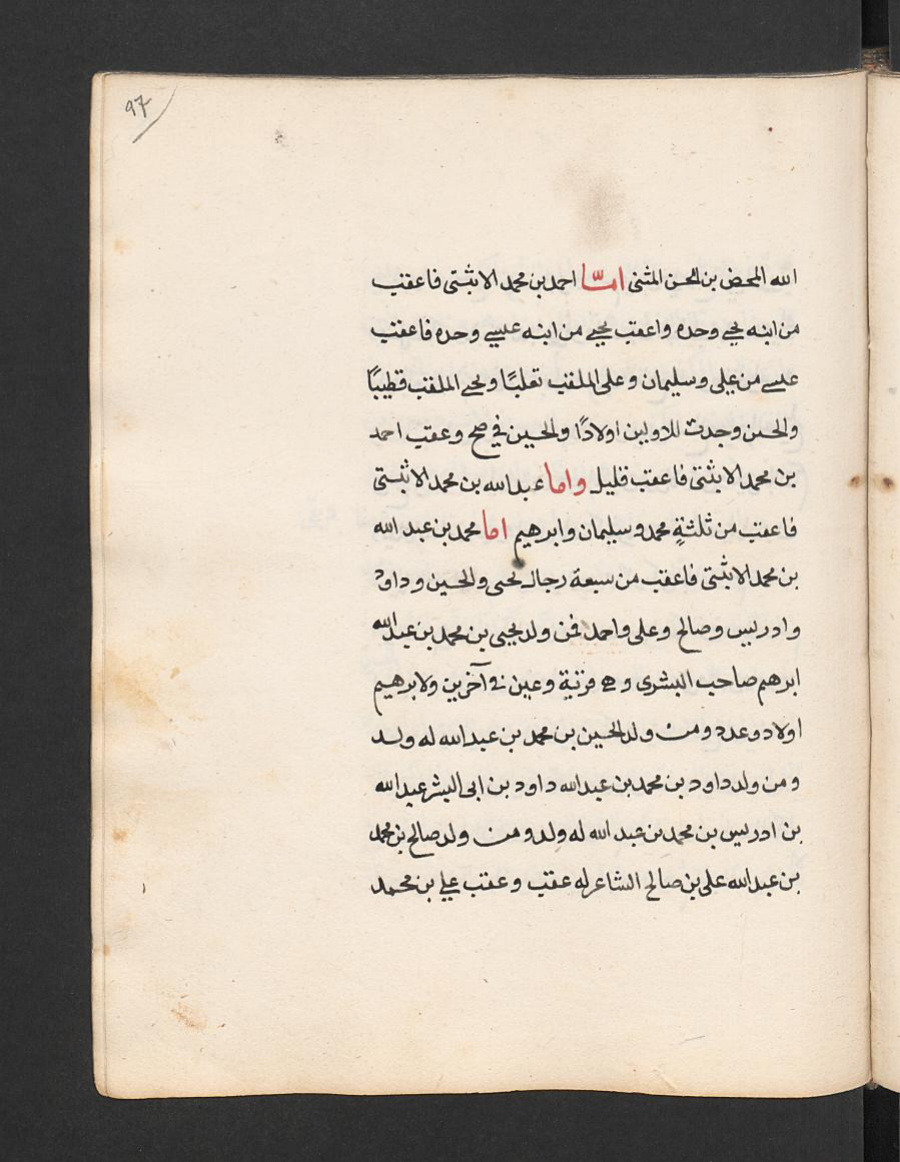 97
الله المحض بن الحسن المثنى امّا احمد بن محمد الابثتى فاعقب
من ابنه يحيى وحده واعقب يحيى من ابنه عيسى وحده فاعقب
عيسى من على وسليمان وعلى الملقب تعلبًا ويحيى الملقب قطيبًا
والحسن وجدت للاولين اولادًا والحسين في صح وعقب احمد
بن محمد الابثتى فاعقب قليل واما عبد الله بن محمد الابثتى
فاعقب من ثلثةٍ محمد وسليمان وابرهيم اما محمد بن عبد الله
بن محمد الابثتى فاعقب من سبعة رجال يحيى والحسين وداود
وادريس وصالح وعلى واحمد فمن ولد يحيى بن محمد بن عبد الله
ابرهيم صاحب البشرى وهى قرية وعين فى آخرين ولابرهيم
اولاد وعدد ومن ولد الحسين بن محمد بن عبد الله له ولد
ومن ولد داود بن محمد بن عبد الله داود بن ابى البشر عبد الله
بن ادريس بن محمد بن عبد الله له ولد ومن ولد صالح بن محمد
بن عبد الله على بن صالح الشاعر له عقب وعقب على بن محمد